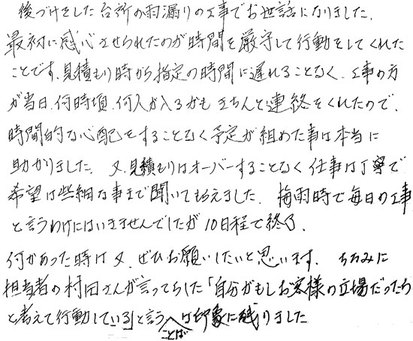 後づけをした台所の雨漏りの工事でお世話になりました。
最初に感心させられたのが時間を厳守して行動をしてくれた
ことです。見積もり時から指定の時間に遅れることなく、工事の方
が当日、何時頃、何人か入るかもきちんと連絡をくれたので、
時間的な心配をすることなく予定が組めた事は本当に
助かりました。又、見積もりはオーバーすることなく仕事は丁寧で
希望は些細な事まで聞いてもらえました。梅雨時で毎日の工事
と言うわけにはいきませんでしたが10日程で終了。
何かあった時は又、ぜひお願いしたいと思います。ちなみに
担当者の村田さんが言ってらした「自分がもしお客様の立場だったら
と考えて行動している」と言うことばは印象に残りました